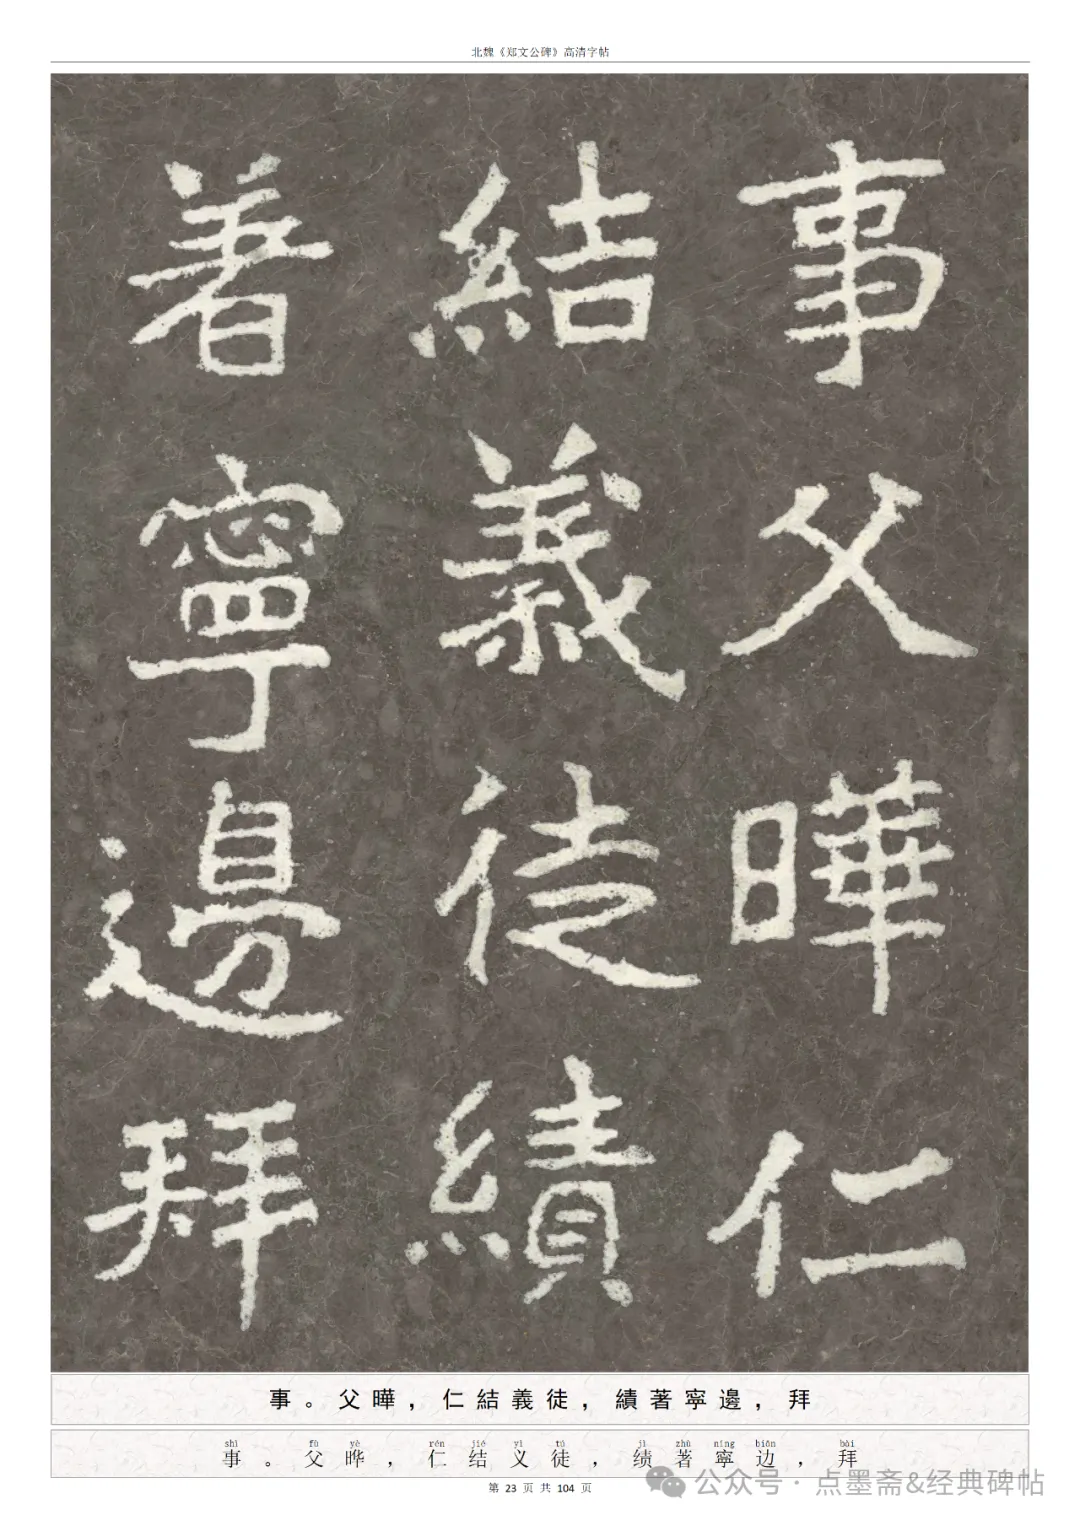 北魏《郑文公碑》高清字帖
事父曄仁
結義徒績
著寧邊拜
事。父曄，仁結義徒，績著寧邊，拜
shì fù yè rén jié yì tú jì zhù níng biān bài
事。父晔，仁结义徒，绩著寧边，拜
第 23 页 共 104 页
公众号·点墨斋&经典碑帖